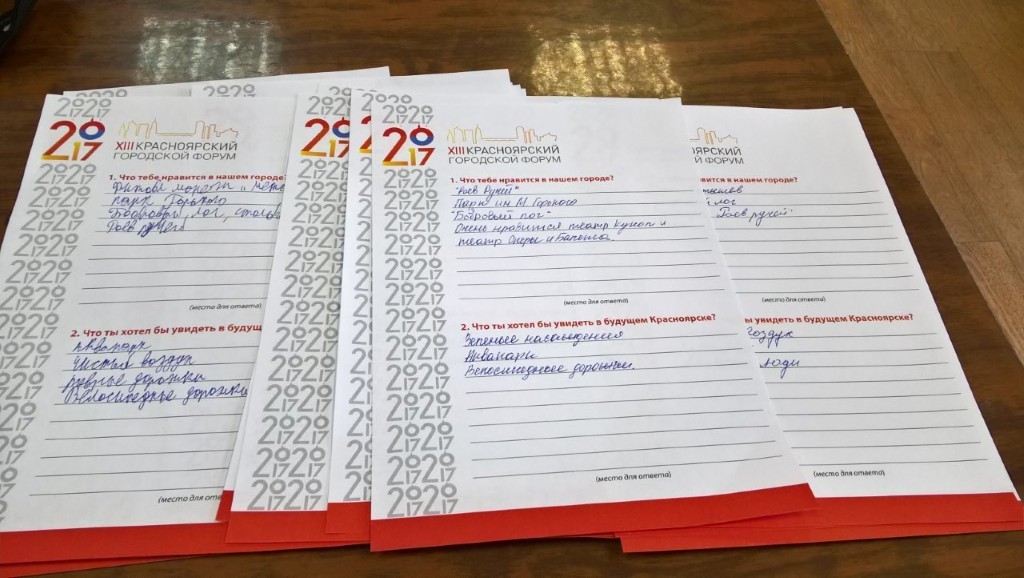 2017
XIII КРАСНОЯРСКИЙ
ГОРОДСКОЙ ФОРУМ
1. Что тебе нравится в нашем городе?
парк Горького
Бобровый лог,
Роев ручей
(место для ответа)
2. Что ты хотел бы увидеть в будущ
Аквапарк
Чистый воздух
Ровные дорожки
Велосипедные дорожки
(место для отве
2017
XIII КРАСНОЯРСКИЙ
ГОРОДСКОЙ ФОРУМ
1. Что тебе нравится в нашем городе?
"Роев Ручей"
Парк им М. Горького
"Бобровый лог"
Очень нравится театр кукол и
театр Оперы и Балета.
(место для ответа)
2. Что ты хотел бы увидеть в будущем Красноярске?
Зеленые насаждения
Аквапарк
Велосипедные дорожки.
(место для ответа)
ЯРСКИЙ
ОЙ ФОРУМ
равится в нашем городе?
лог
Роев ручей
(место для ответа)
ы увидеть в будущем Красноярске?
воздух
люди
(место для ответа)